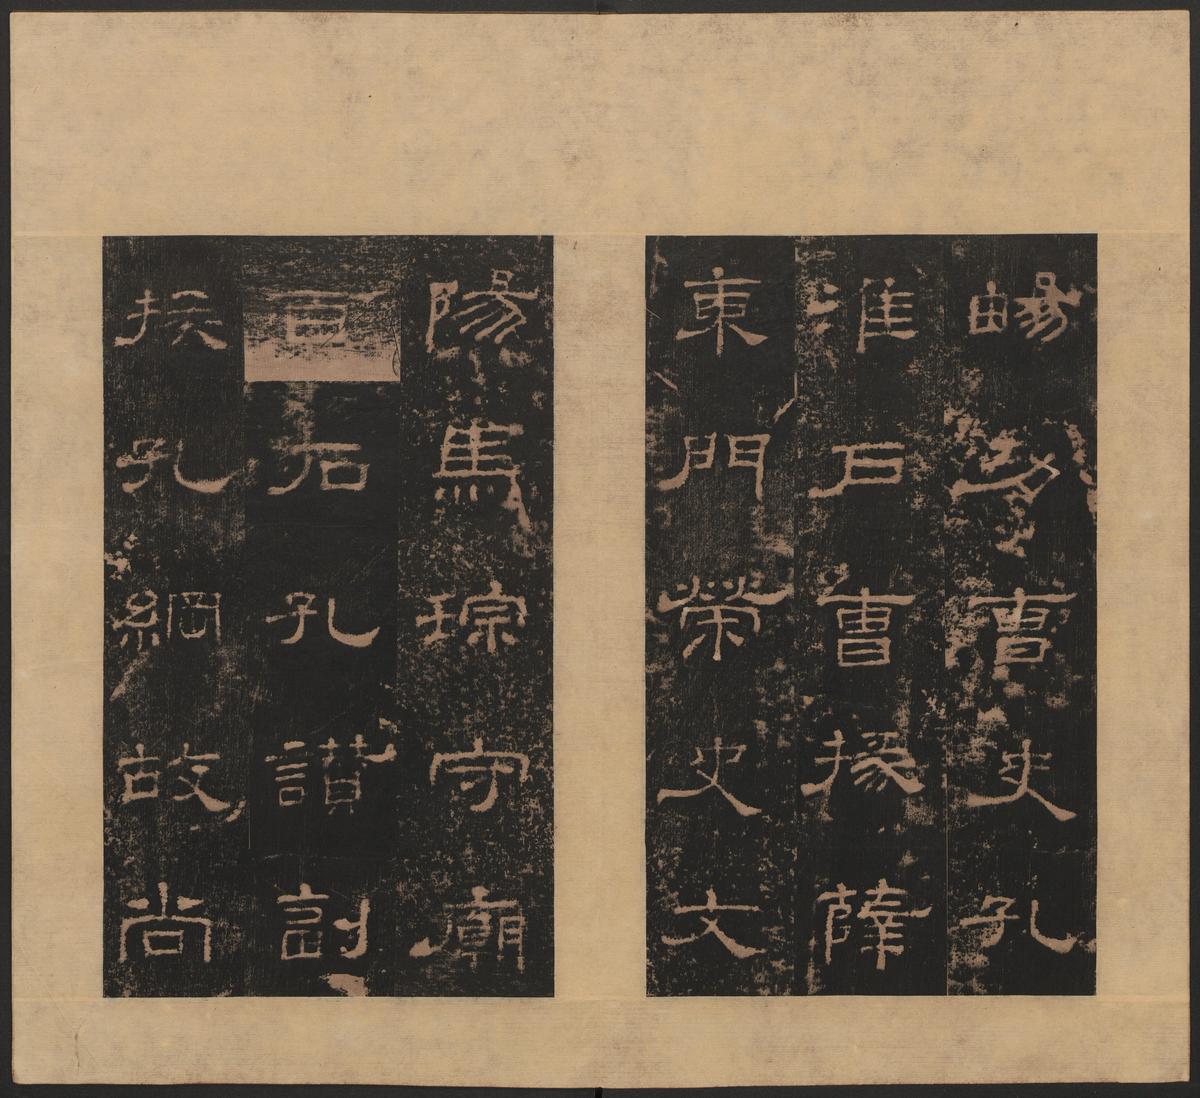 暢功曹史孔
淮戶曹掾薛
東門榮史文
陽馬琮守廟
百石孔讃副
掾孔綱故尚